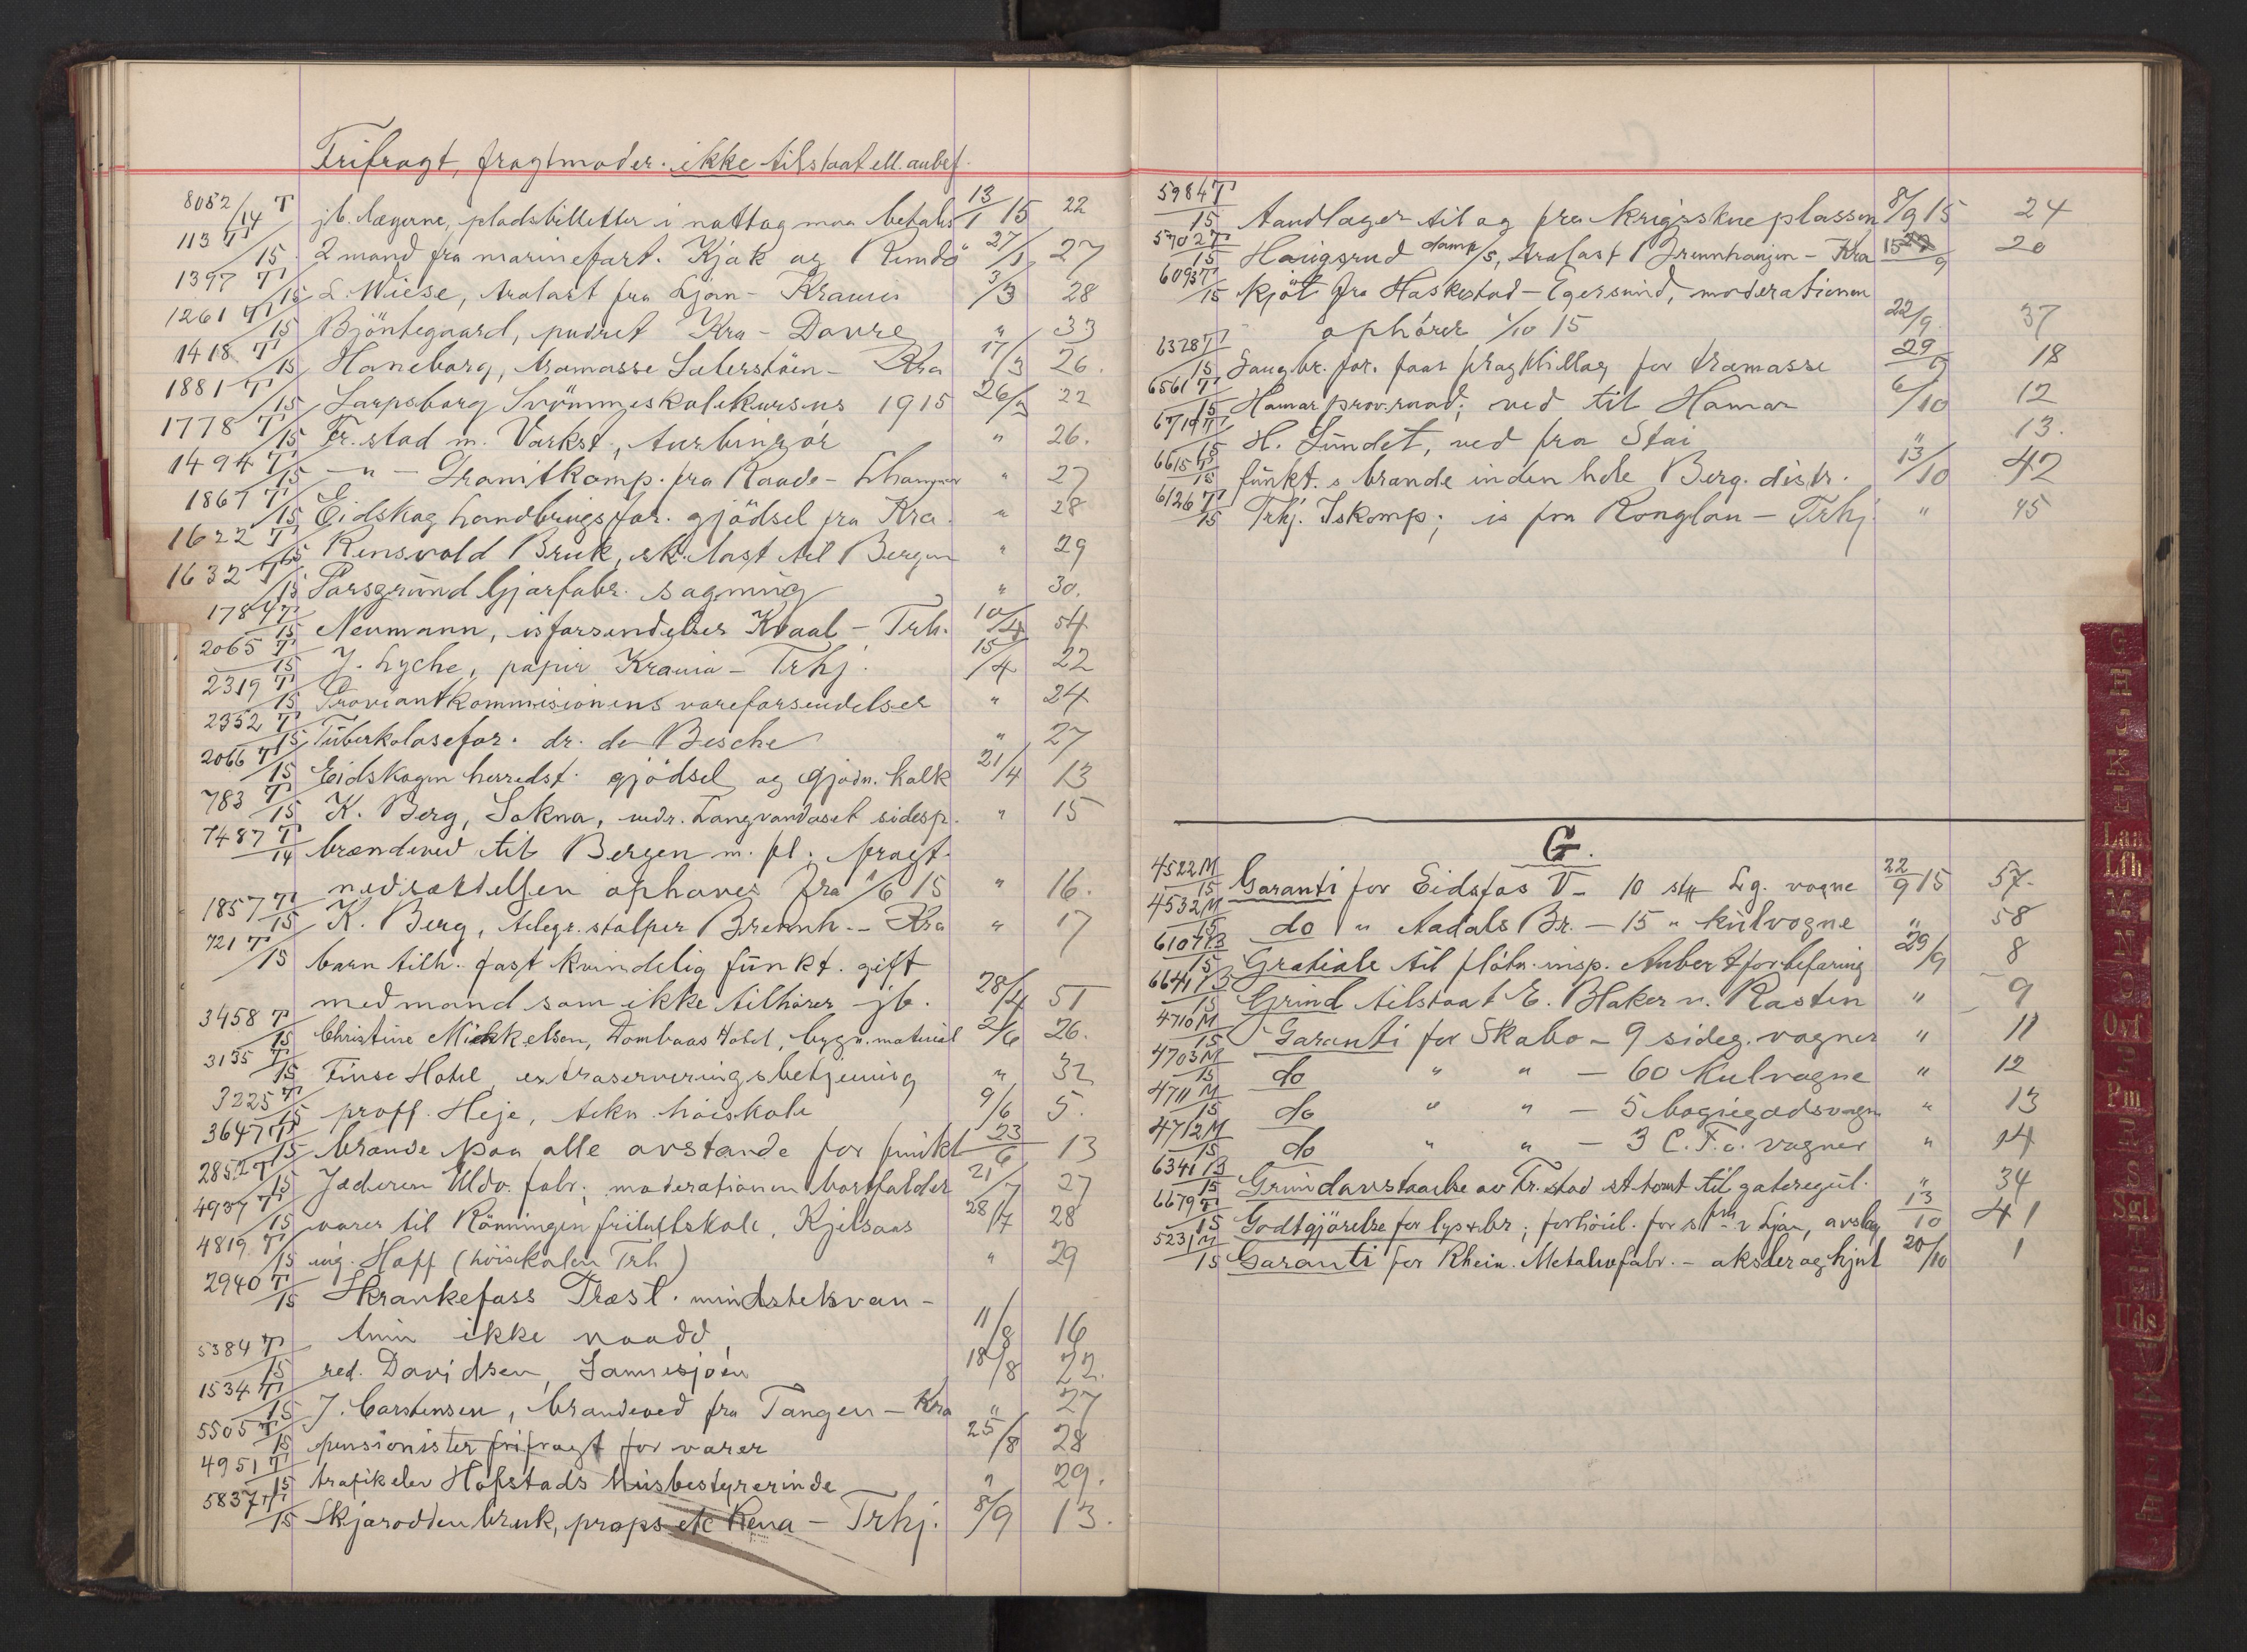 Frifragt, fragtmoder. ikke tilstaat ell. anbef.
8052/14 T jb. lægerne, pladsbilletter i nattog maa betales 13/1 15 22
113 T/15 2 mand fra marinefart. Kjøk og Rundö 27/1 27
1397 T/15 L. Wiese, trælast fra Ljan - Krania 3/3 28
1261 T/15 Bjöntegaard, pudret Kra - Dovre " 33
1418 T/15 Haneborg, tramasse Sæterstöen - Kra 17/3 26.
1881 T/15 Sarpsborg Svömmeskolekursus 1915 26/3 22
1778 T/15 Fr.stad m. Værkst., turbinrör " 26.
1494 T/15 - " - Granitkomp. fra Raade - " 27
1867 T/15 Eidskog landbrugsfor. gjödsel fra Kra. " 28
1622 T/15 Rensvold Bruk, sk.last til Bergen " 29
1632 T/15 Porsgrund Gjærfabr. sagmug " 30.
1784 T/15 Neumann, isforsendelser Kvaal - Trh. 10/4 54
2065 T/15 J. Lyche, papir Krania - Trhj. 15/4 22
2319 T/15 Proviantkommisionens vareforsendelser " 24
2352 T/15 Tuberkolosefor. dr. de Besche " 27
2066 T/15 Eidskogen herredst. gjödsel og gjødn. kalk 21/4 13
783 T/15 K. Berg, Sokna, undr. Langvandaset sidesp. " 15
7487 T/14 brændeved til Bergen m. fl. fragt-
nedsættelsen ophæves fra 1/6 15 " 16.
1857 T/15 K. Berg, telegr. stolper Brekah. - Kra " 17
721 T/15 barn tilh. fast kvindelig funkt. gift
med mand som ikke tilhörer jb. 28/4 51
3458 T/15 Christine Mickelsen, Dombaas Hotel, bygn. material 2/6 26.
3135 T/15 Finse Hotel, extraserveringsbetjening " 32
3225 T/15 proff. Heje, tekn. höiskole 9/6 5.
3647 T/15 brænde paa alle avstande for funkt 23/6 13
2852 T/15 Jæderen Uldv. fabr; moderationen bortfalder 21/7 27
4937 T/15 varer til Rönningen friluftskole, Kjelsaas 28/7 28
4819 T/15 ing. Hoff (höiskolen Trh) " 29
2940 T/15 Skrankefoss Træsl. mindstekvan-
tum ikke naadd 11/8 16
5384 T/15 red. Davidsen, Sannesjöen 18/8 22.
1534 T/15 J. Carstensen, brændeved fra Tangen - Kra " 27
5505 T/15 pensionister frifragt for varer 25/8 28
4951 T/15 trafikelev Hofstads husbestyrerinde " 29.
5837 T/15 Skjærodden bruk, props etc Rena - Trhj. 8/9 13.
5984 T/15 tandlæger til og fra krigsskueplassen 8/9 15 24
5702 T/15 Haugsrud damp/s, trælast Grennhaugen - Kra 15/9 20
6093 T/15 kjöt fra Haskestad - Egersund, moderationen
ophörer 1/10 15 22/9 37
6328 T/15 Saugbr. for. faar fragttillæg for tramasse 29/9 18
6561 T/15 Hamar prov.raad; ved til Hamar 6/10 12
6719 T/15 H. Sundet, ved fra Stai " 13.
6615 T/15 funkt. s brænde inden hele Berg. distr. 13/10 42
6126 T/15 Trhj. Iskomp; is fra Ronglan - Trhj. " 45
G.
4522 M/15 Garanti for Eidsfos V - 10 stk Lg. vogne 22/9 15 57.
4532 M/15 do " Aadals Br. - 15 " kulvogne " 58
6107 B/15 Gratiale til fløtn.insp. Aubert for befaring 29/9 8
6641 B/15 Grind tilstaat E. Blaker v. Rasten " 9
4710 M/15 Garanti for Skabo - 9 sideg. vogner " 11
4703 M/15 do " " - 60 kulvogne " 12
4711 M/15 do " " - 5 bogiegodsvogn " 13
4712 M/15 do " " - 3 C.F.o. vogner " 14
6341 B/15 Grundavstaaelse av Fr.stad st.tomt til gateregul. " 34
6679 T/15 Godtgjörelse for lys & br; forhöiel. for st.fm. v Ljan, avslag 13/10 41
5231 M/15 Garanti for Rhein. Metalwfabr. - aksler og hjul 20/10 1
G
H
I
K
L
Laa
Lfh
M
N
O
Ovf
P
Pm
R
S
Sgl
T
U
Uds
V
Æ